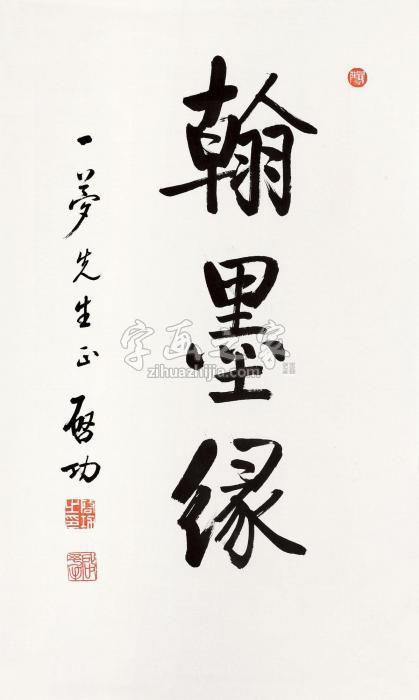 翰墨缘
一梦先生正 启功
字画之家
zihuazhijia.com